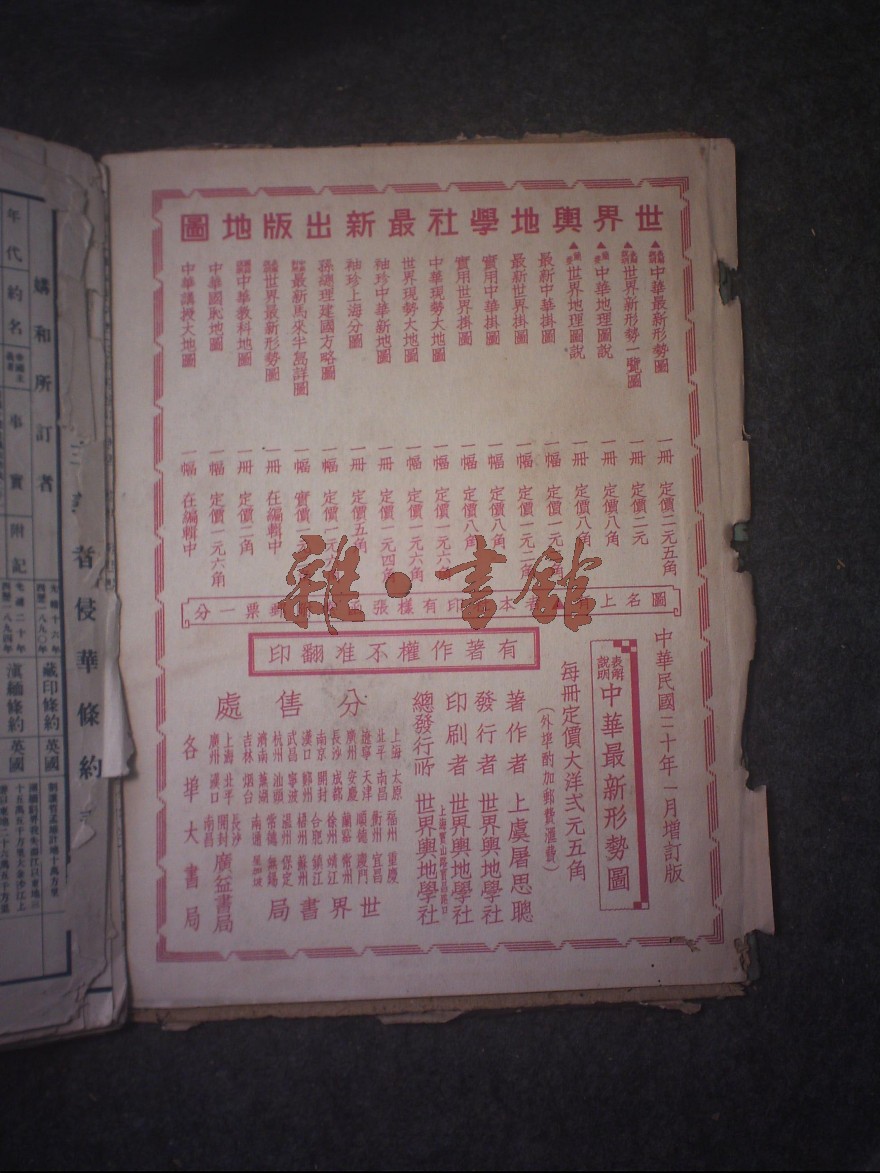 世界輿地學社最新出版地圖
中華最新形勢圖 一冊 定價二元五角
世界新形勢一覽圖 一冊 定價二元
中華地理圖說 一冊 定價八角
世界地理圖說 一冊 定價八角
最新中華掛圖 一幅
最新世界掛圖 一幅
實用中華掛圖 一幅 定價八角
實用世界掛圖 一幅 定價八角
中華現勢大地圖 一幅
世界現勢大地圖 一幅
袖珍中華新地圖 一冊 定價一元四角
袖珍上海分圖 一冊 定價五角
孫總理建國方略圖 一幅
最新馬來半島詳圖 一幅
世界最新形勢圖 一冊 在編輯中
中華教科地圖 一冊
中華國恥地圖 一幅 定價一元六角
中華講授大地圖 一幅 在編輯中
圖名上
本
印有樣張
郵票一分
雜·書館
有著作權不准翻印
中華民國二十年一月增訂版
表解說明
中華最新形勢圖
每冊定價大洋弍元五角
(外埠酌加郵費滙費)
著作者 上虞屠思聰
發行者 世界輿地學社
印刷者 世界輿地學社
總發行所 世界輿地學社
分售處
上海 太原 福州 重慶
北平 南昌 衢州 宜昌
遼寧 天津 順德 廈門
廣州 安慶 蘭谿 常州
長沙 成都 徐州 靖江
南京 開封 合肥 鎮江
漢口 鄭州 梧州 蘇州
武昌 寧波 溫州 保定
杭州 汕頭 常德 無錫
濟南 蕪湖 南通
吉林 烟台
世界書局
上海 北平 長沙 開封
廣州 漢口 南昌
廣益書局
各埠大書局
者侵華條約
媾和所訂者
年代 約名 事實 附記
藏印條約 英國
滇緬條約 英國